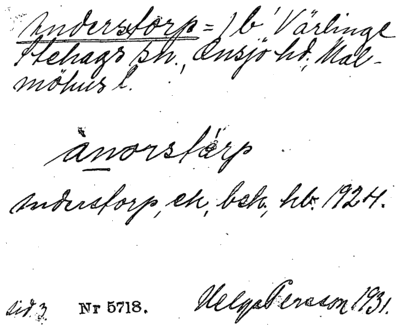 Anderstorp = } b' Värlinge
Stehags sn., Onsjö hd., Mal-
möhus l.
ànorstårp
Anderstorp, ek, bsk, hb. 1924.
sid. 3. Nr 5718. Helga Persson 1931.